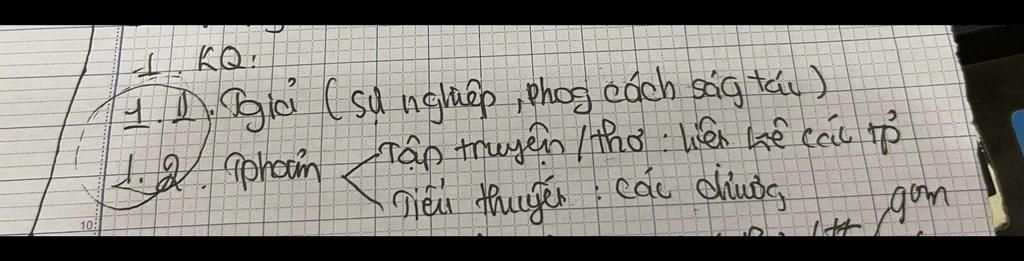 1. KQ:
1.1. Tgiả (sự nghiệp, phog cách ság tác)
1.2. Tphẩm < Tập truyện / thơ: liên hệ các tp
Tiểu thuyết: các chươg
gom